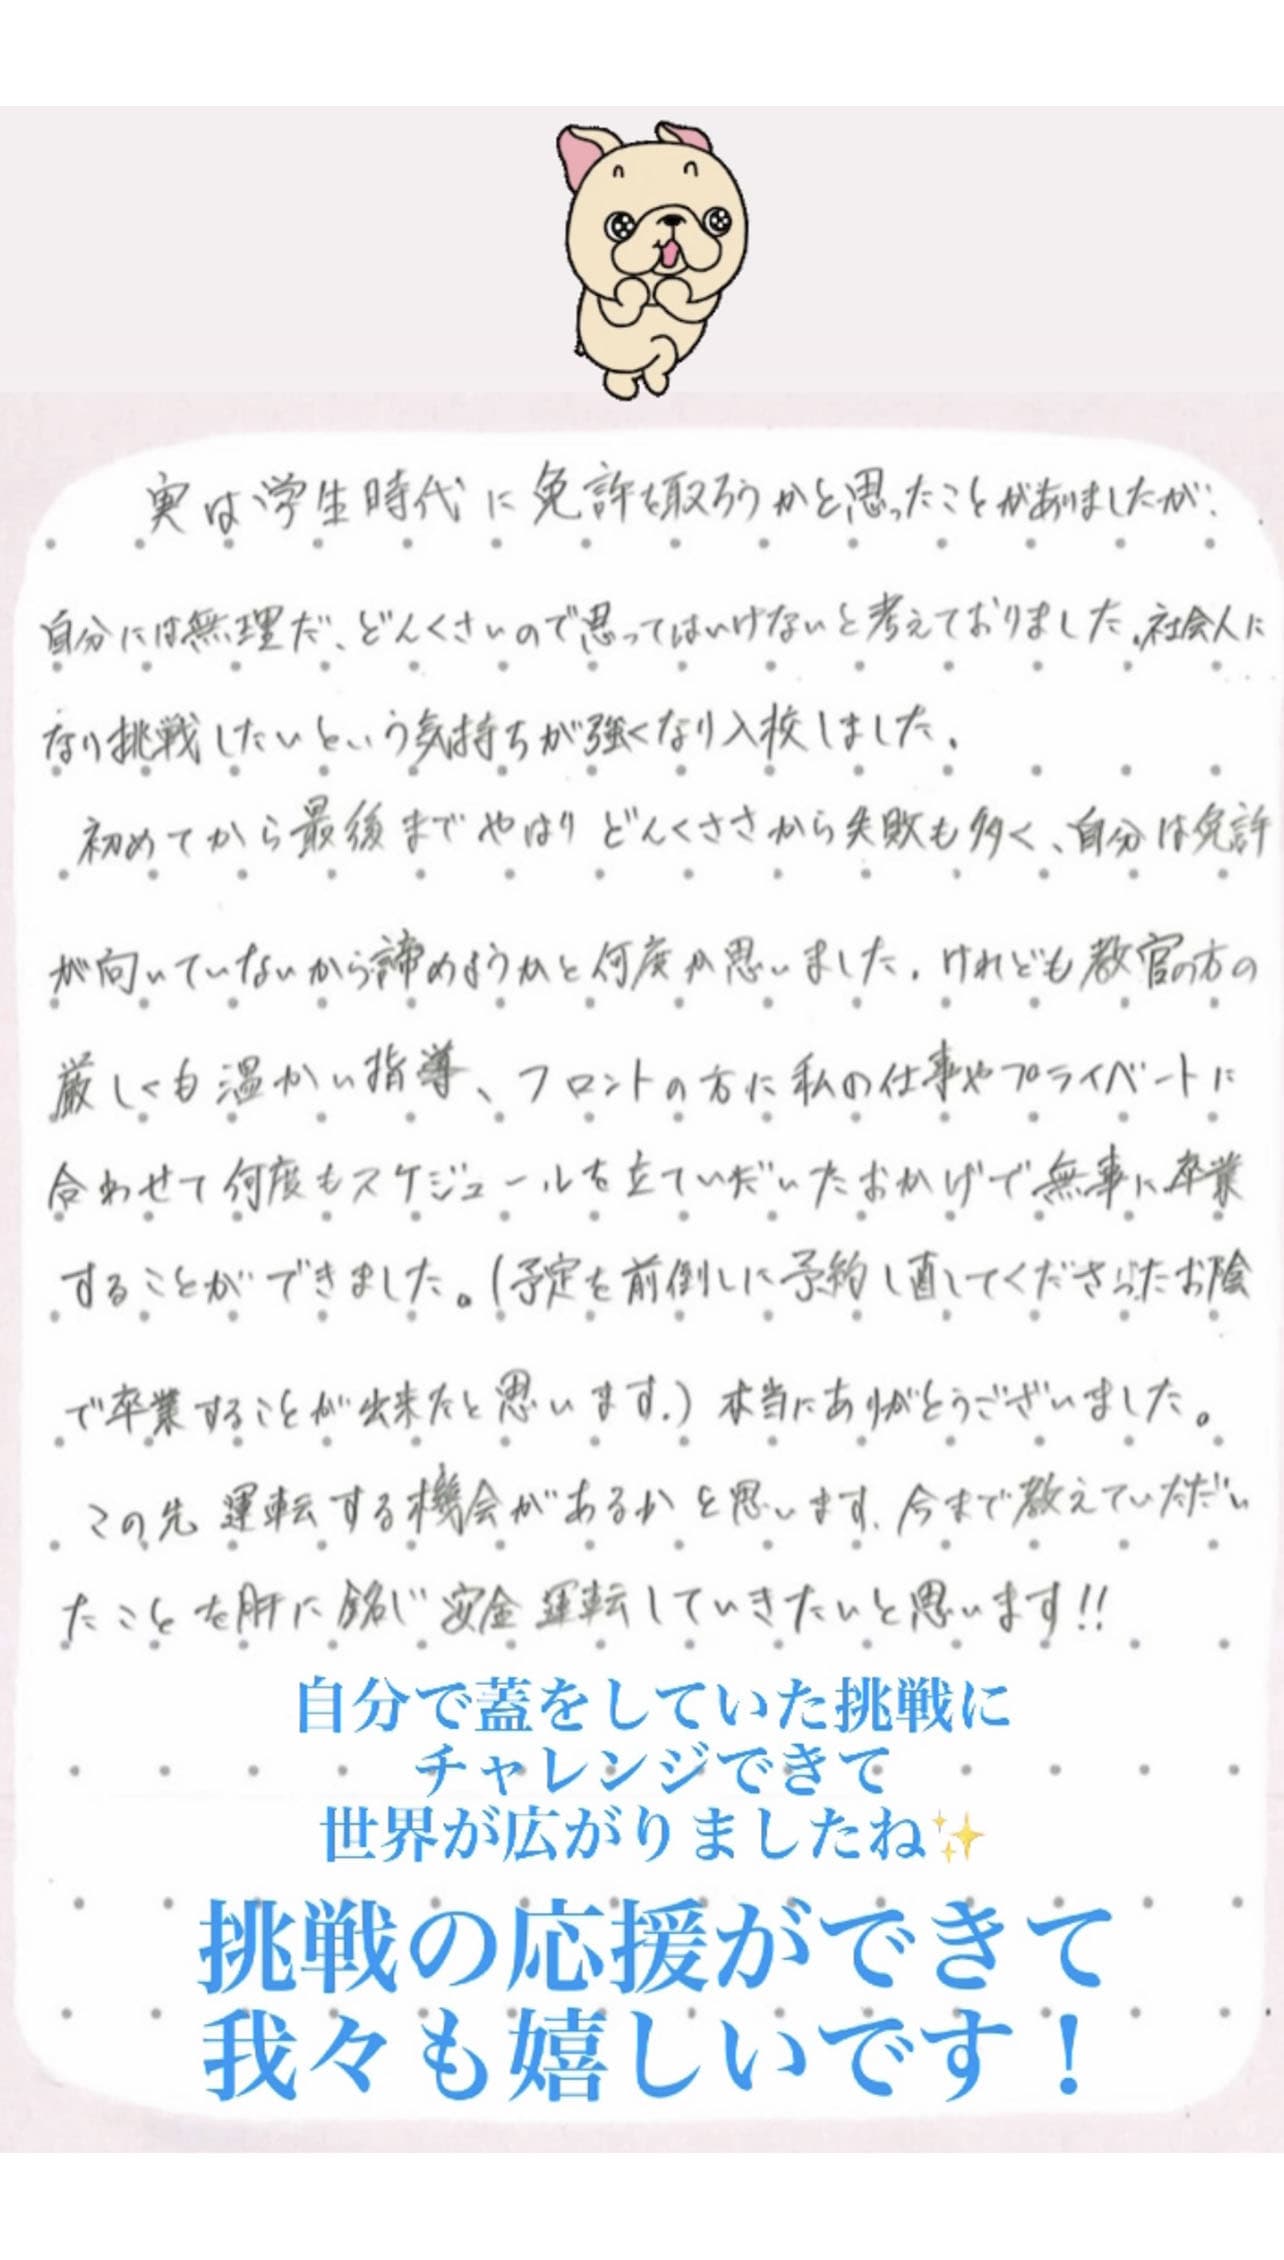 実は学生時代に免許を取ろうかと思ったことがありましたが、
自分には無理だ、どんくさいので思ってはいけないと考えておりました。社会人に
なり挑戦したいという気持ちが強くなり入校しました。
初めてから最後までやはりどんくささから失敗も多く、自分は免許
が向いていないから諦めようかと何度か思いました。けれども教官の方の
厳しくも温かい指導、フロントの方に私の仕事やプライベートに
合わせて何度もスケジュールを立ていだいたおかげで無事に卒業
することができました。(予定を前倒しに予約し直してくださったお陰
で卒業することが出来たと思います。)本当にありがとうございました。
この先運転する機会があるかと思います。今まで教えていただい
たことを肝に銘じ安全運転していきたいと思います!!
自分で蓋をしていた挑戦に
チャレンジできて
世界が広がりましたね✨
挑戦の応援ができて
我々も嬉しいです！